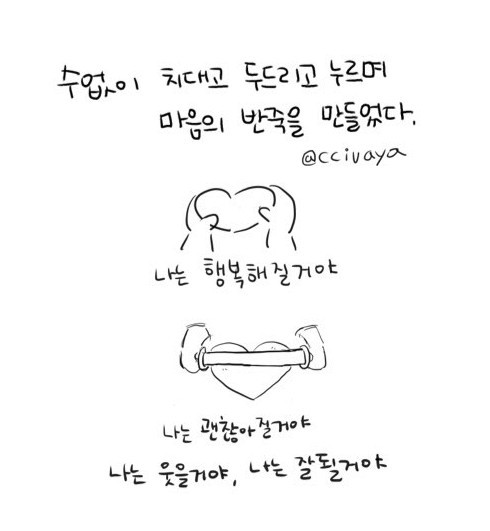 수없이 치대고 두드리고 누르며
마음의 반죽을 만들었다.
@ccivaya
나는 행복해질거야
나는 괜찮아질거야
나는 웃을거야, 나는 잘될거야